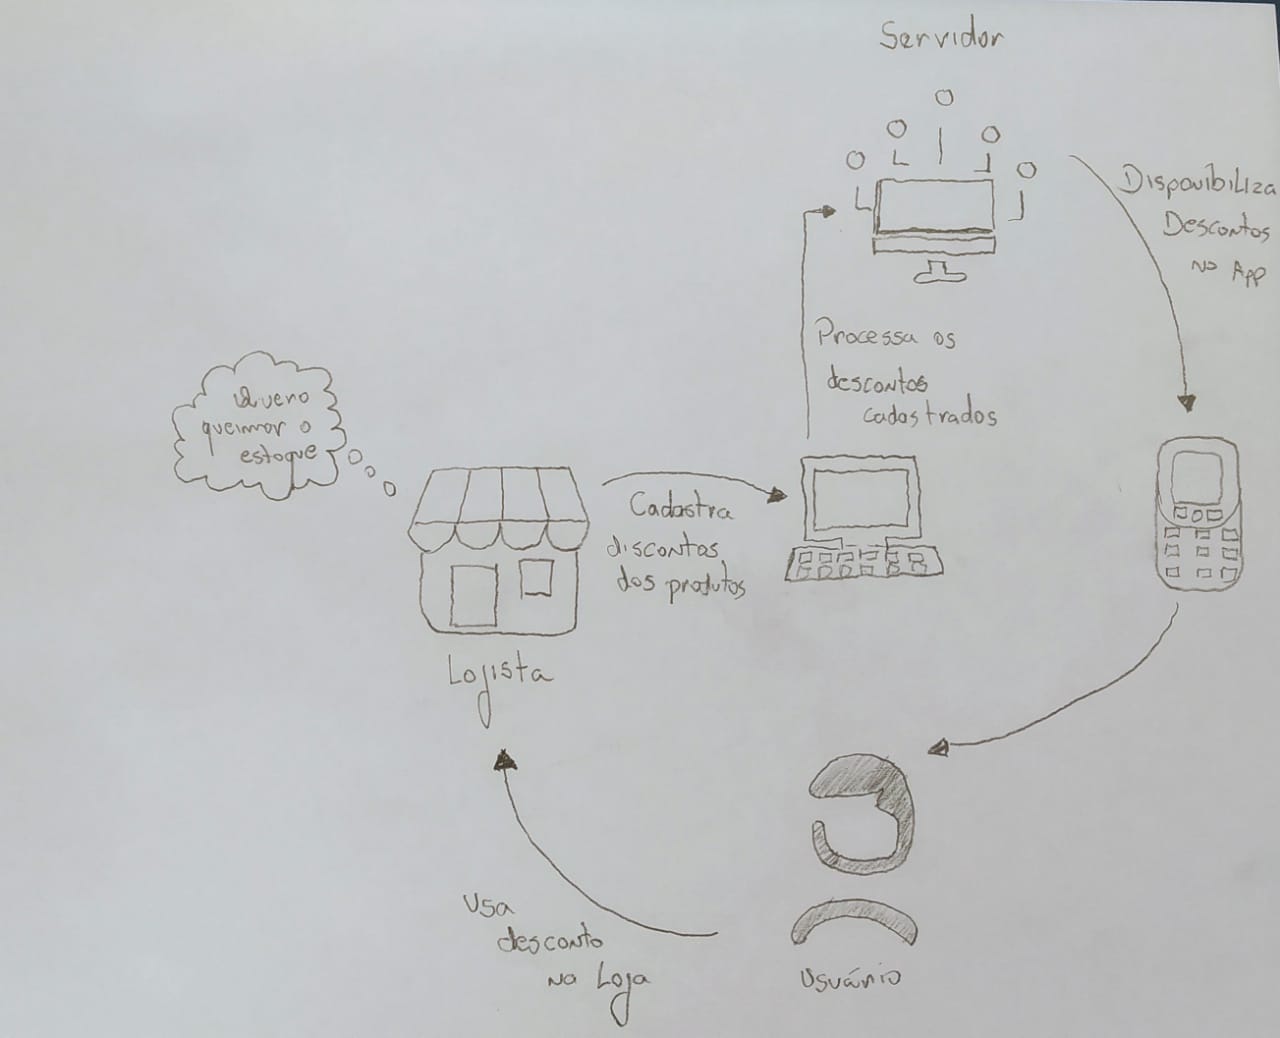 Servidor
Disponibiliza
Descontos
no App
Processa os
descontos
cadastrados
Quero
queimar o
estoque
Cadastra
discontos
dos produtos
Lojista
Usa
desconto
na Loja
Usuário